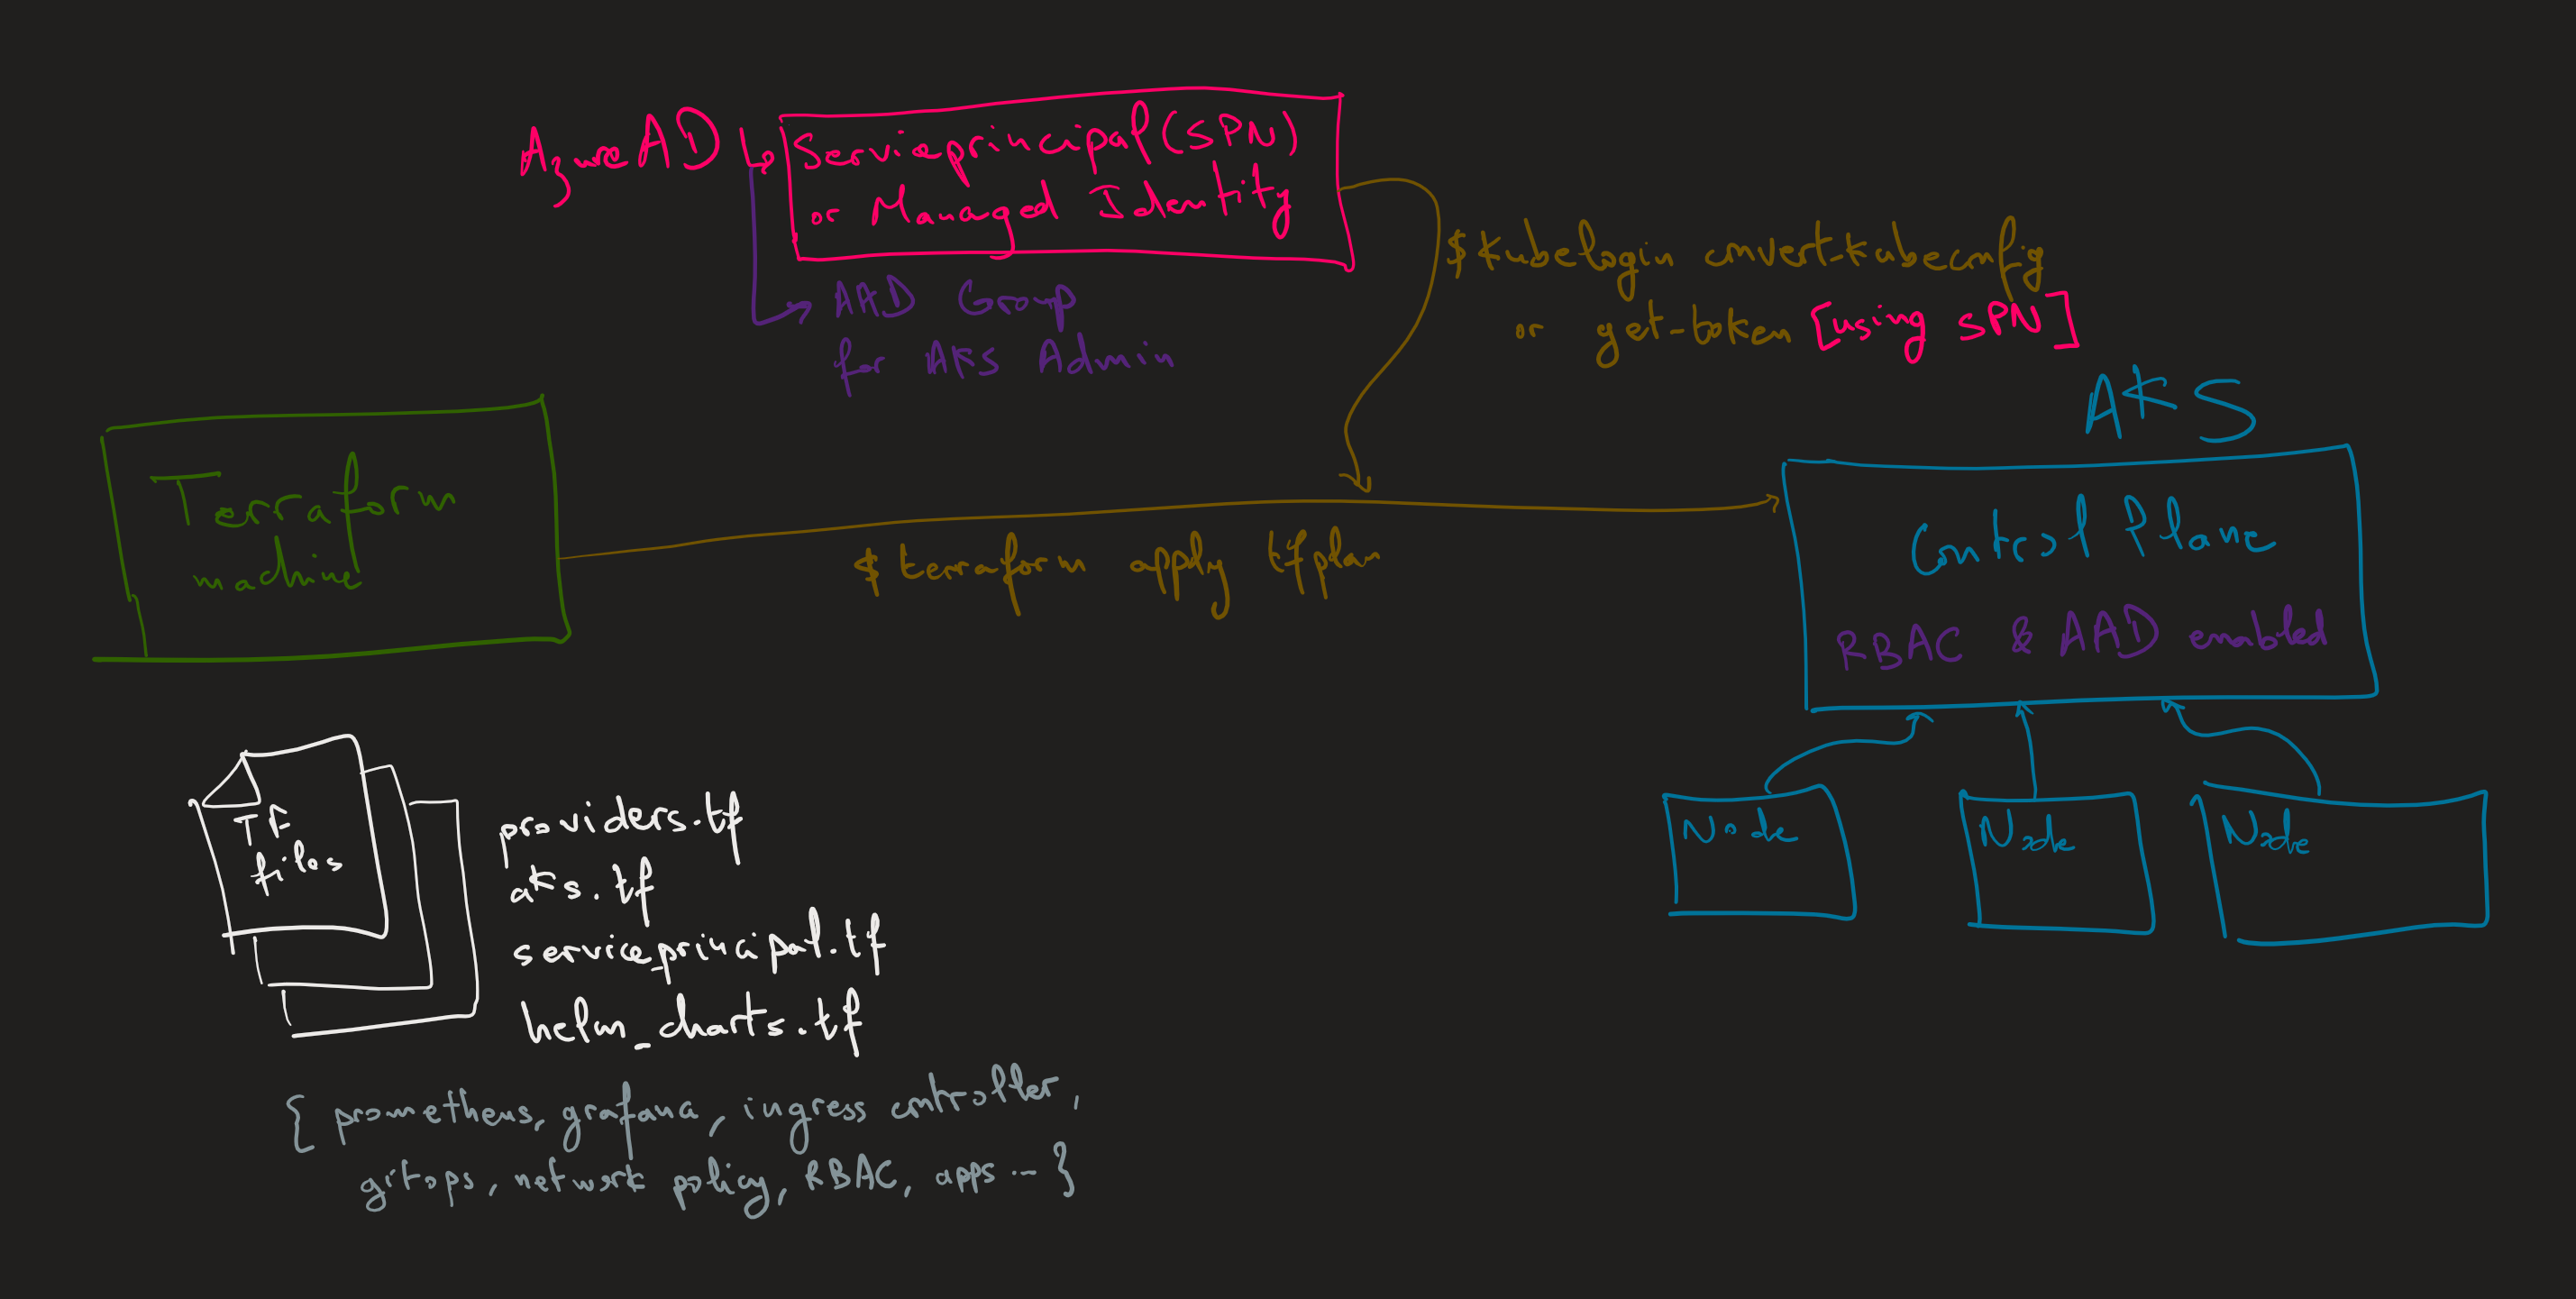 AzureAD
Serviceprincipal (SPN)
or Managed Identity
AAD Group
for AKS Admin
$ kubelogin convert-kubeconfig
or get-token [using SPN]
AKS
Terraform
machine
$ terraform apply tfplan
Control Plane
RBAC & AAD enabled
Node
Node
Node
TF
files
providers.tf
aks.tf
service_principal.tf
helm_charts.tf
{ prometheus, grafana, ingress controller,
gitops, network policy, RBAC, apps ... }